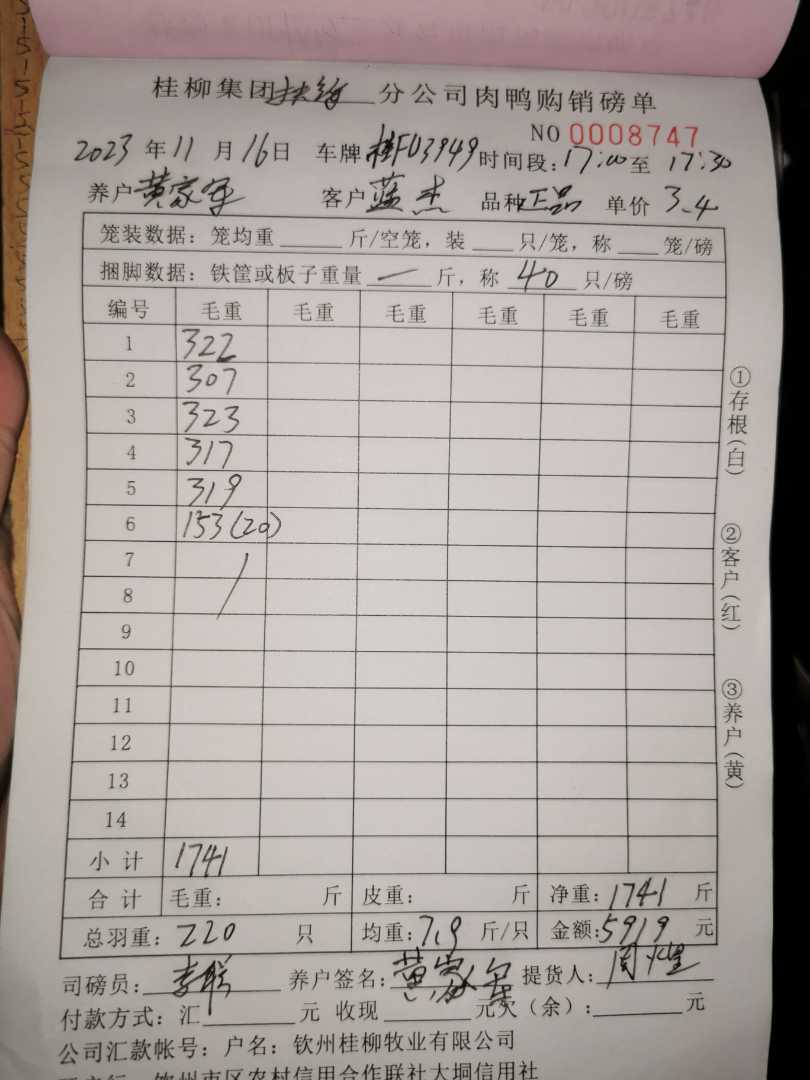 桂柳集团扶绥分公司肉鸭购销磅单
NO 0008747
2023年11月16日 车牌桂FU3949时间段:17:00至17:30
养户黄家军 客户蓝杰 品种正品 单价3.4
笼装数据:笼均重____斤/空笼,装____只/笼,称____笼/磅
捆脚数据:铁筐或板子重量一斤,称40只/磅
编号 毛重 毛重 毛重 毛重 毛重 毛重
1 322
2 307
3 323
4 317
5 319
6 153(20)
7
8
9
10
11
12
13
14
小计 1741
合计 毛重: 斤 皮重: 斤 净重:1741斤
总羽重:220只 均重:7.9斤/只 金额:5919元
司磅员: 养户签名:黄家军 提货人:
付款方式:汇____元 收现____元欠(余):____元
公司汇款帐号:户名:钦州桂柳牧业有限公司
钦州市区农村信用合作联社大垌信用社
①存根(白)
②客户(红)
③养户(黄)